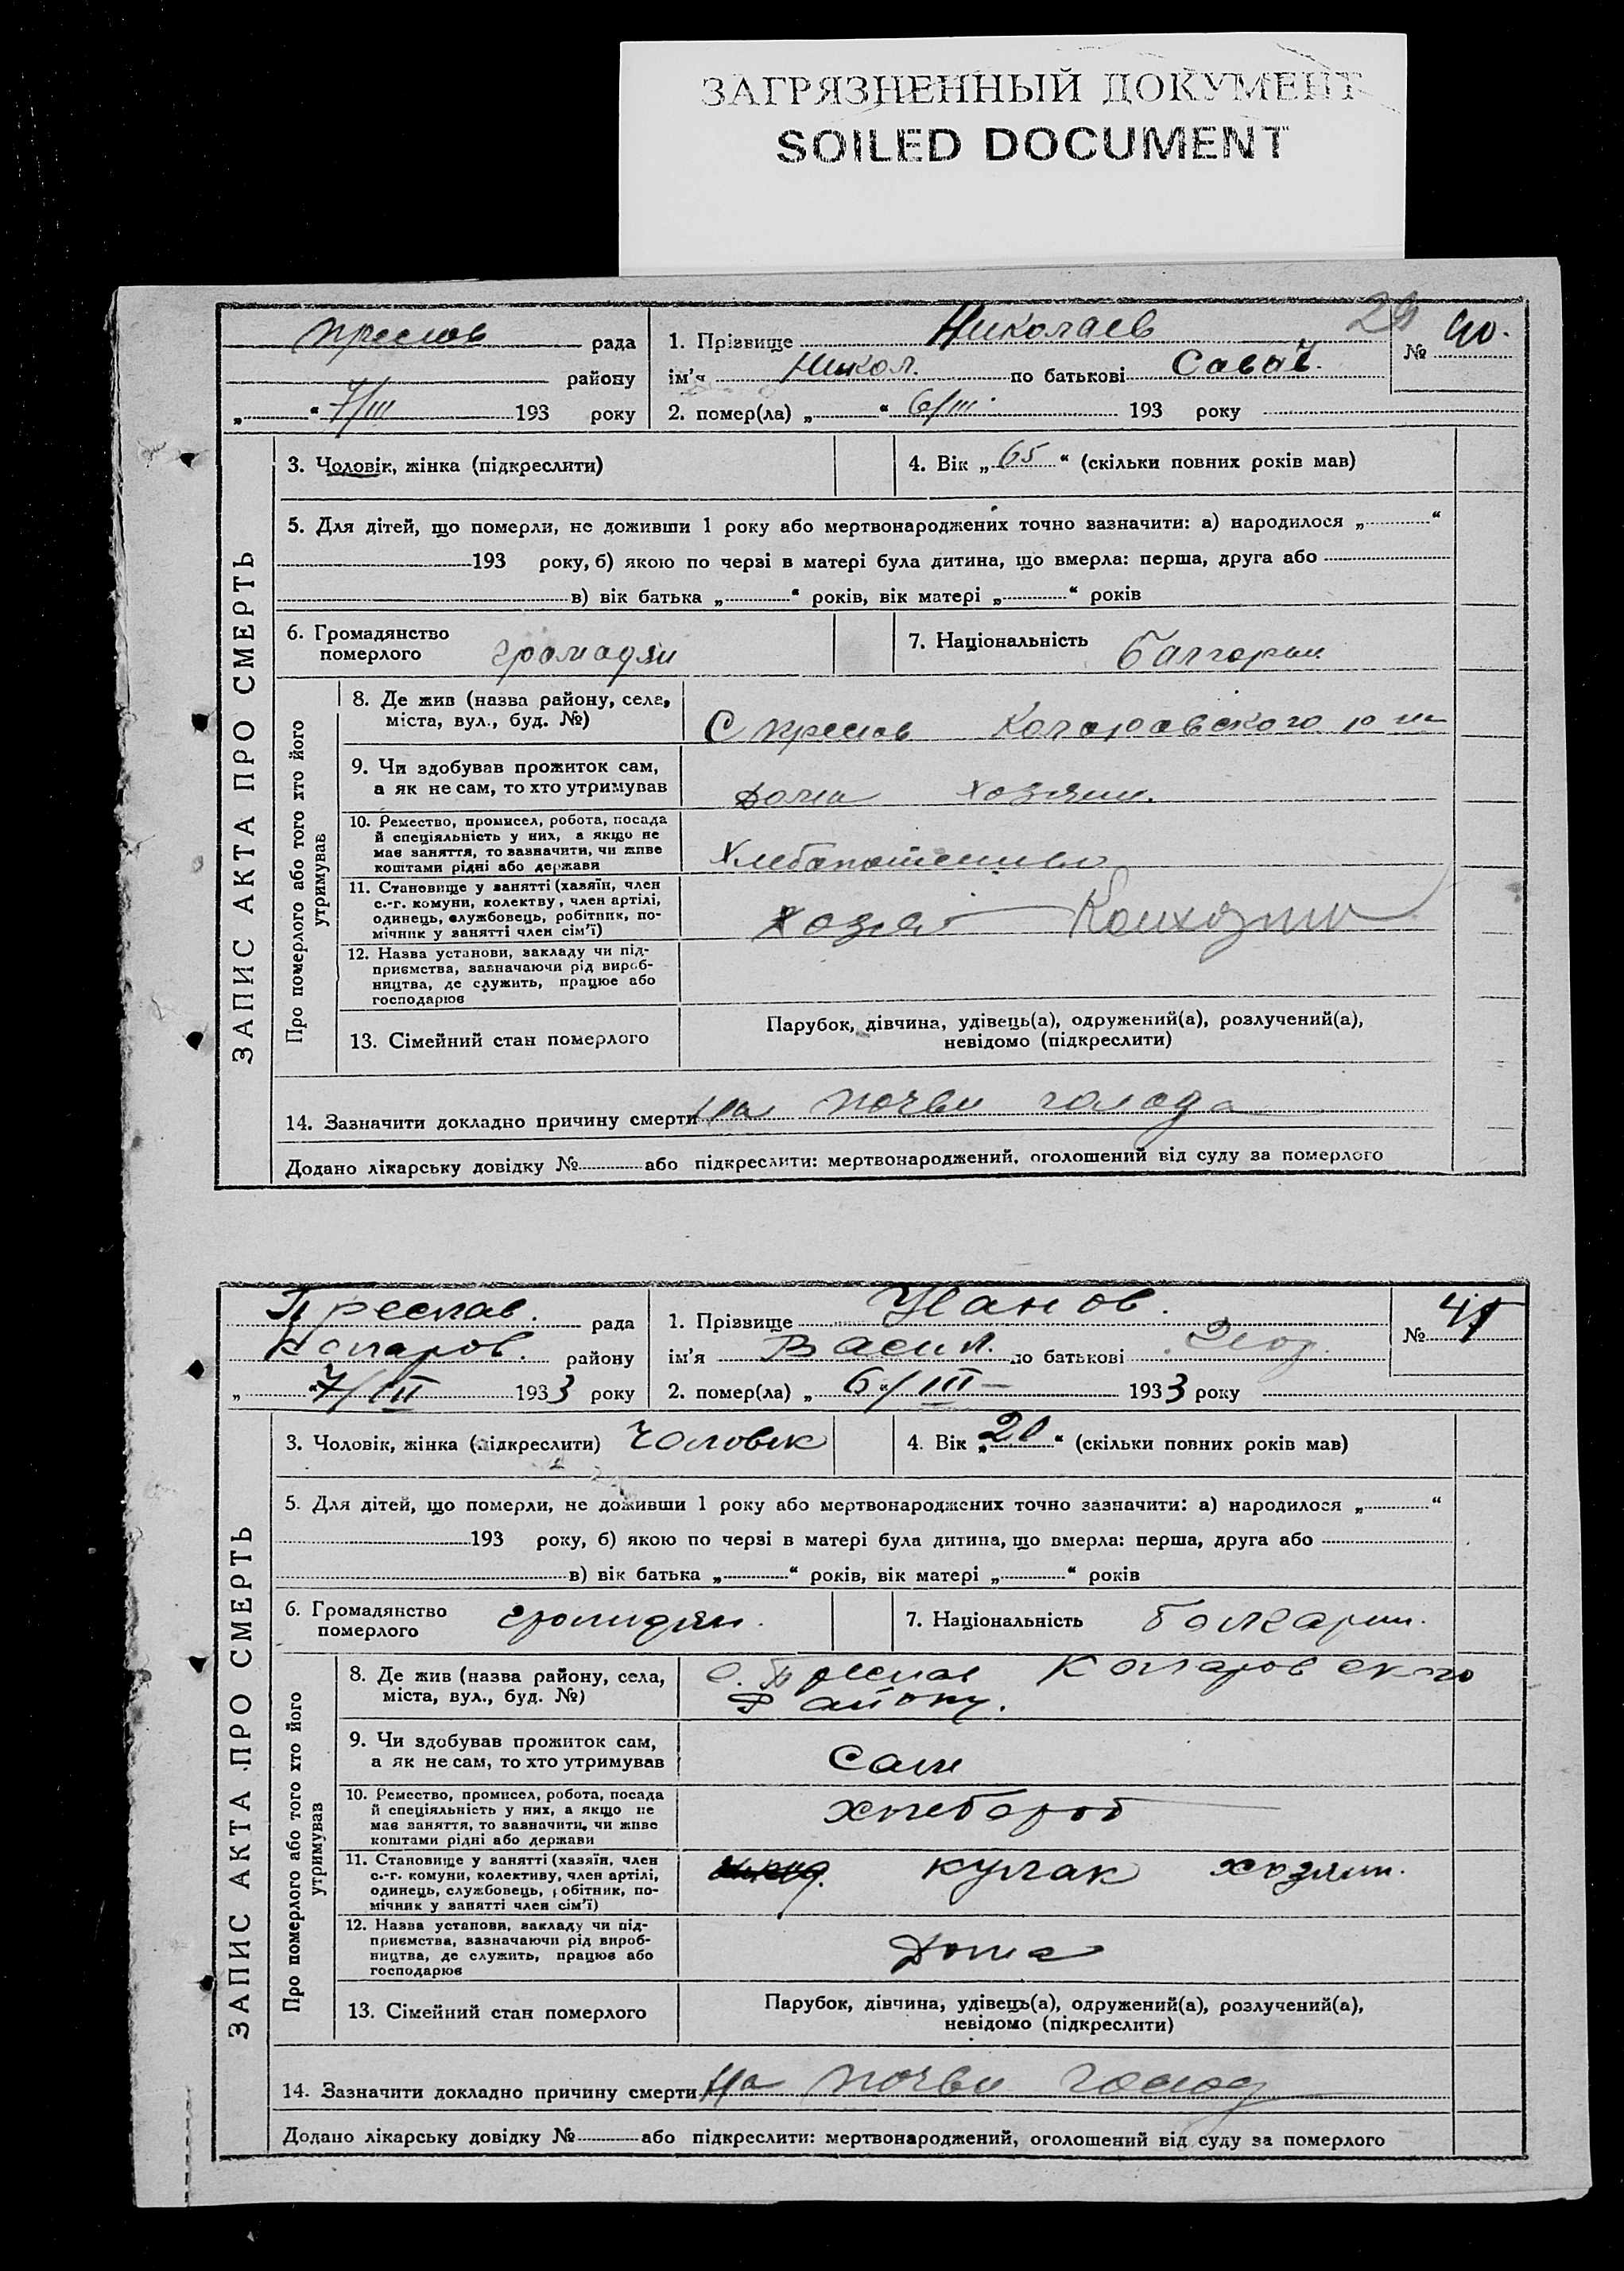 ЗАГРЯЗНЕННЫЙ ДОКУМЕНТ
SOILED DOCUMENT
Преслав рада
району
„ “ 7/III 193 року
1. Прізвище Николаев
ім'я Никол. по батькові Савов.
2. помер(ла) „ “ 6/III. 193 року
№ 40.
ЗАПИС АКТА ПРО СМЕРТЬ
3. Чоловік, жінка (підкреслити)
4. Вік „65“ (скільки повних років мав)
5. Для дітей, що померли, не доживши 1 року або мертвонароджених точно зазначити: а) народилося „ “
193 року, б) якою по черзі в матері була дитина, що вмерла: перша, друга або
в) вік батька „ “ років, вік матері „ “ років
6. Громадянство
померлого громадян
7. Національність Балгорин
Про померлого або того хто його
утримував
8. Де жив (назва району, села,
міста, вул., буд. №)
С Преслав Коларовского р на
9. Чи здобував прожиток сам,
а як не сам, то хто утримував
Дома хозяин.
10. Ремество, промисел, робота, посада
й спеціяльність у них, а якщо не
має заняття, то зазначити, чи живе
коштами рідні або держави
Хлебопашество
11. Становище у занятті (хазяїн, член
с.-г. комуни, колективу, член артілі,
одинець, службовець, робітник, по-
мічник у занятті член сім'ї)
12. Назва установи, закладу чи під-
приємства, зазначаючи рід вироб-
ництва, де служить, працює або
господарює
13. Сімейний стан померлого
Парубок, дівчина, удівець(а), одружений(а), розлучений(а),
невідомо (підкреслити)
14. Зазначити докладно причину смерти На почви голода
Додано лікарську довідку № або підкреслити: мертвонароджений, оголошений від суду за померлого
Преслав. рада
Коларов. району
„ 7/III 1933 року
1. Прізвище Иванов.
ім'я Васил. по батькові
2. помер(ла) „ 6“/III 1933 року
№ 41
ЗАПИС АКТА ПРО СМЕРТЬ
3. Чоловік, жінка (підкреслити) Чоловік
4. Вік „20“ (скільки повних років мав)
5. Для дітей, що померли, не доживши 1 року або мертвонароджених точно зазначити: а) народилося „ “
193 року, б) якою по черзі в матері була дитина, що вмерла: перша, друга або
в) вік батька „ “ років, вік матері „ “ років
6. Громадянство
померлого громадян.
7. Національність Болгарин.
Про померлого або того хто його
утримував
8. Де жив (назва району, села,
міста, вул., буд. №)
с. Преслав Коларовского
Району.
9. Чи здобував прожиток сам,
а як не сам, то хто утримував
Сам
10. Ремество, промисел, робота, посада
й спеціяльність у них, а якщо не
має заняття, то зазначити, чи живе
коштами рідні або держави
Хлебороб
11. Становище у занятті (хазяїн, член
с.-г. комуни, колективу, член артілі,
одинець, службовець, робітник, по-
мічник у занятті член сім'ї)
кулак хозяин.
12. Назва установи, закладу чи під-
приємства, зазначаючи рід вироб-
ництва, де служить, працює або
господарює
Дома
13. Сімейний стан померлого
Парубок, дівчина, удівець(а), одружений(а), розлучений(а),
невідомо (підкреслити)
14. Зазначити докладно причину смерти На почви голод
Додано лікарську довідку № або підкреслити: мертвонароджений, оголошений від суду за померлого